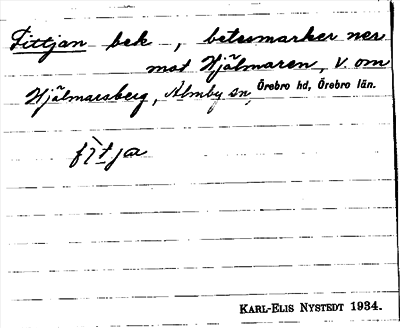 Fittjan bek , betesmarker ner
mot Hjälmaren, V. om
Hjälmarsberg, Almby sn, Örebro hd, Örebro län.
fìtja
KARL-ELIS NYSTEDT 1934.